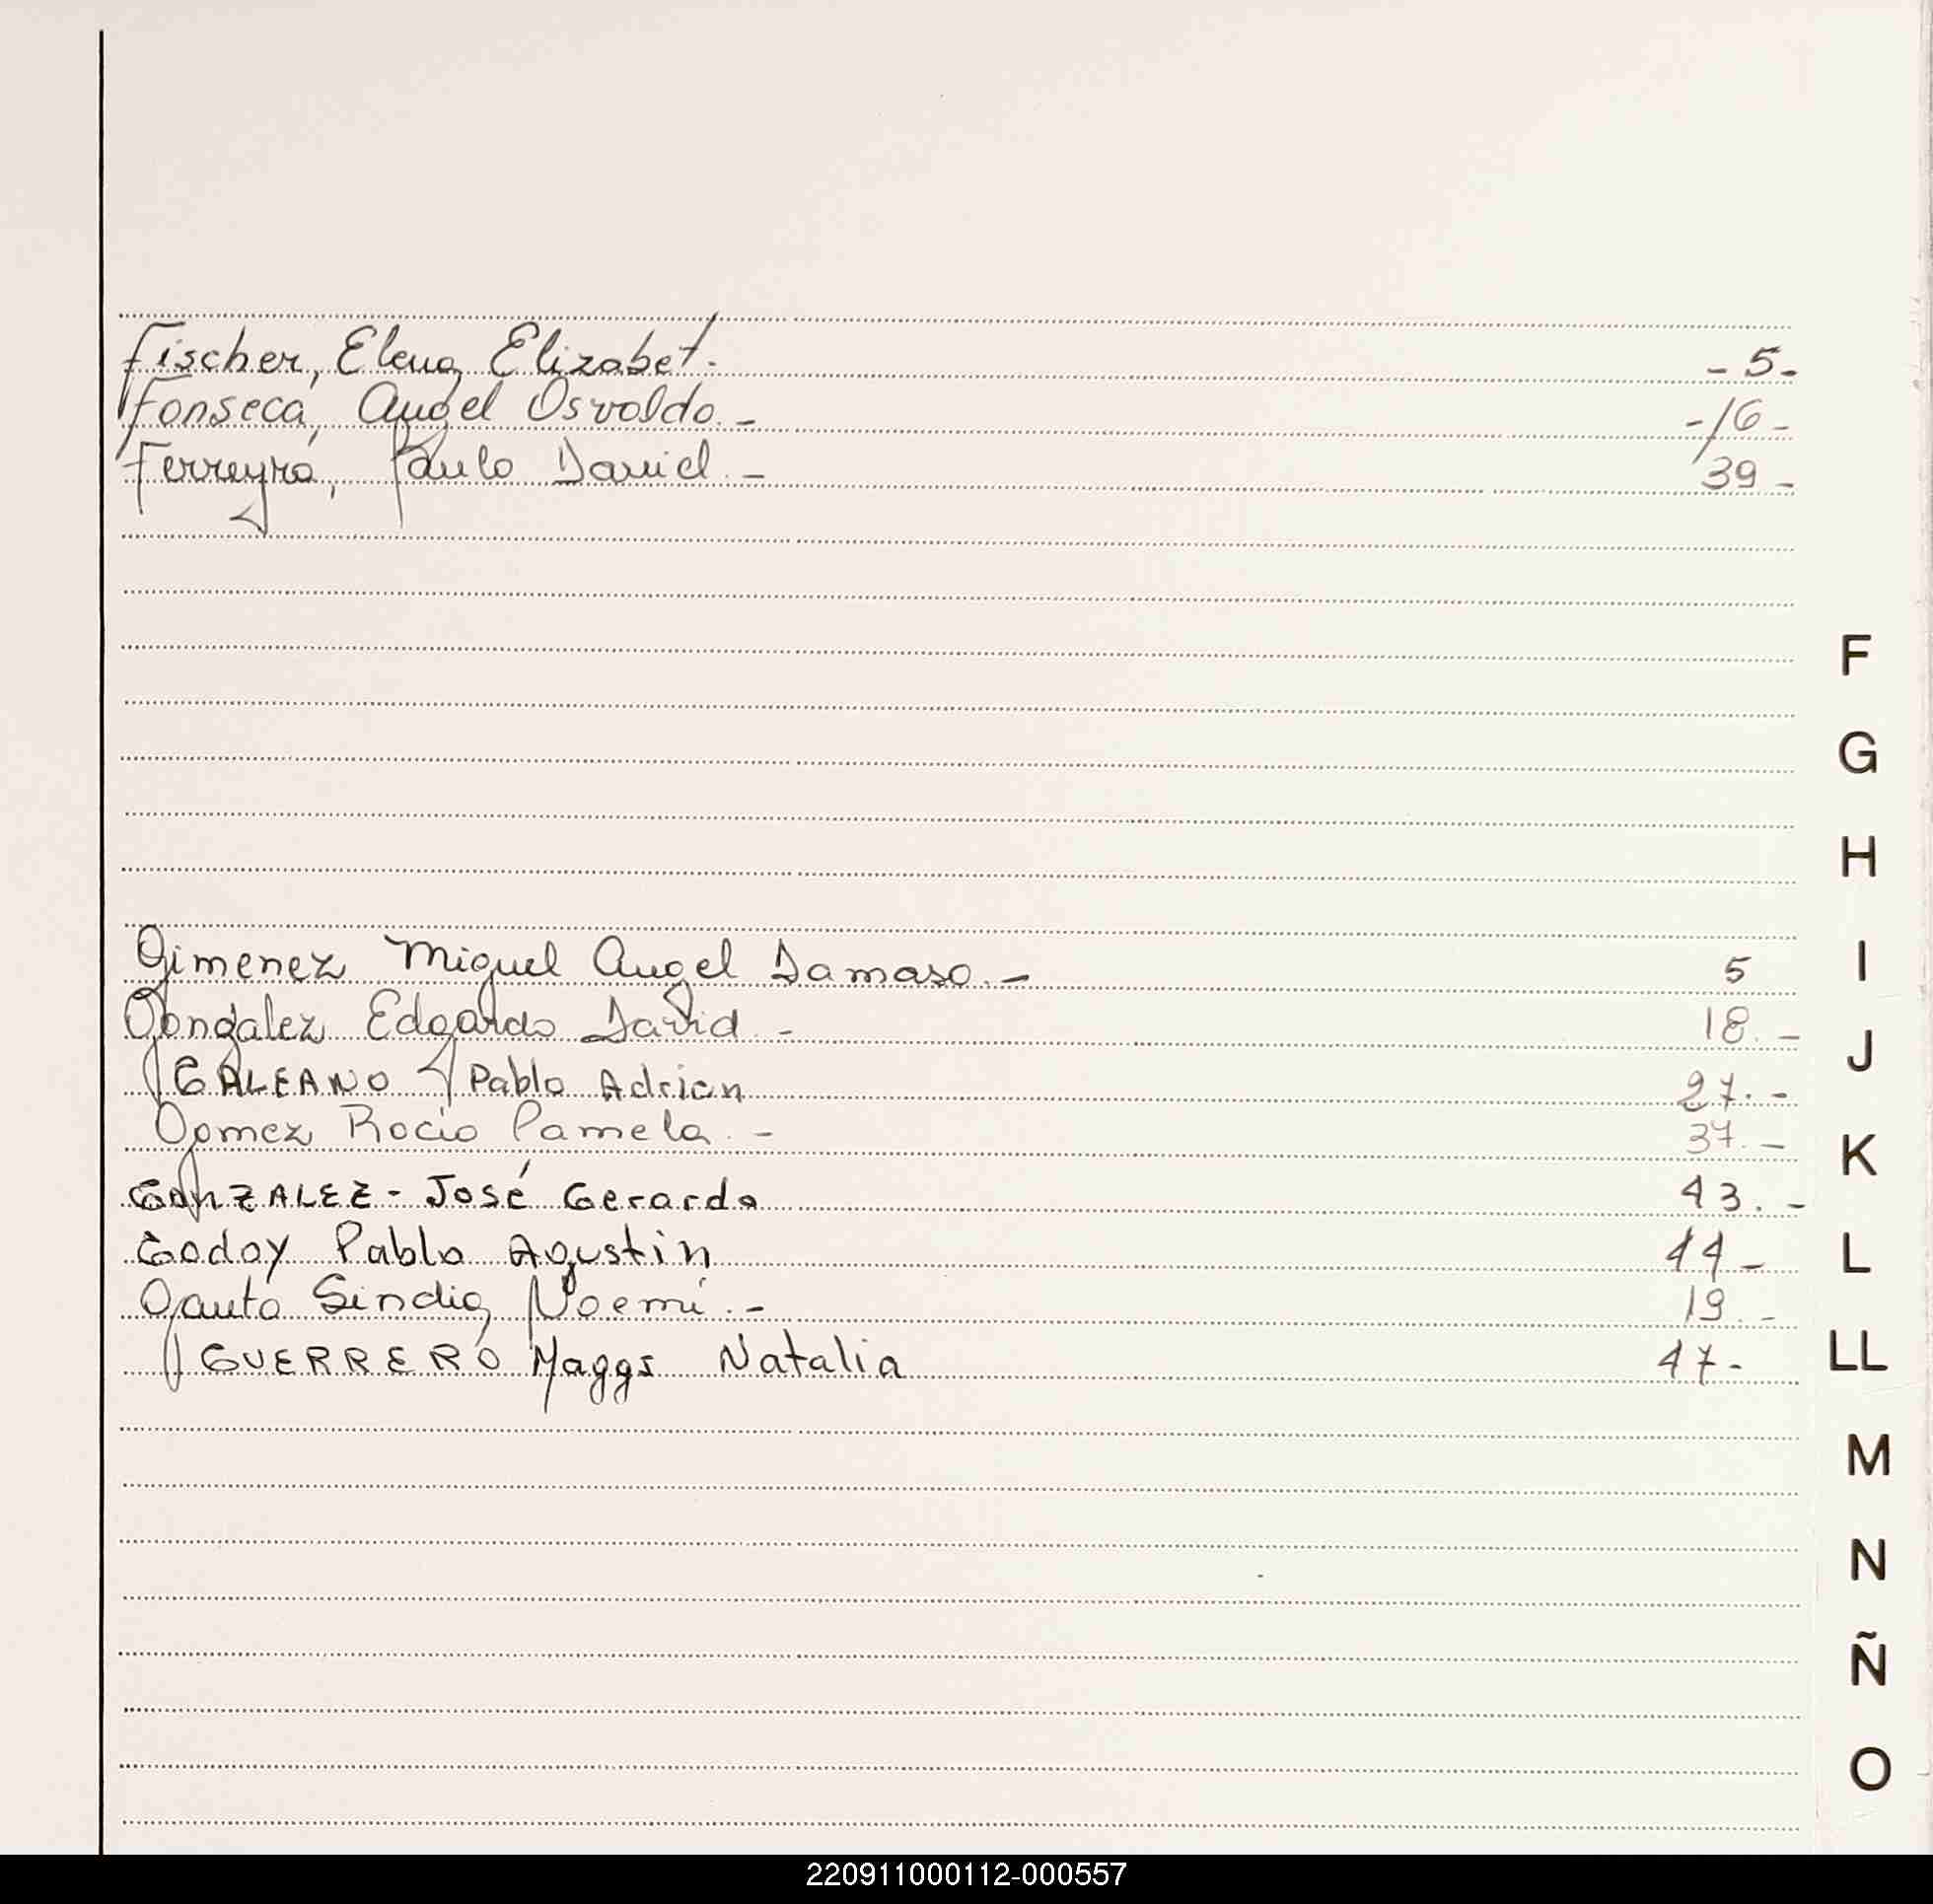 Fischer, Elena Elizabet. - 5 -
Fonseca, Angel Osvaldo. - - 16 -
Ferreyra, Paulo Daniel. - 39 -
Gimenez Miguel Angel Damaso. - 5
Gongalez Edgardo David - 18. -
GALEANO Pablo Adrian 27. -
Gomez Rocio Pamela. - 37. -
GONZALEZ - José Gerardo 43. -
Godoy Pablo Agustin 44 -
Gauto Sindia Noemí. - 19. -
GUERRERO Maggs Natalia 47 -
F
G
H
I
J
K
L
LL
M
N
Ñ
O
220911000112-000557